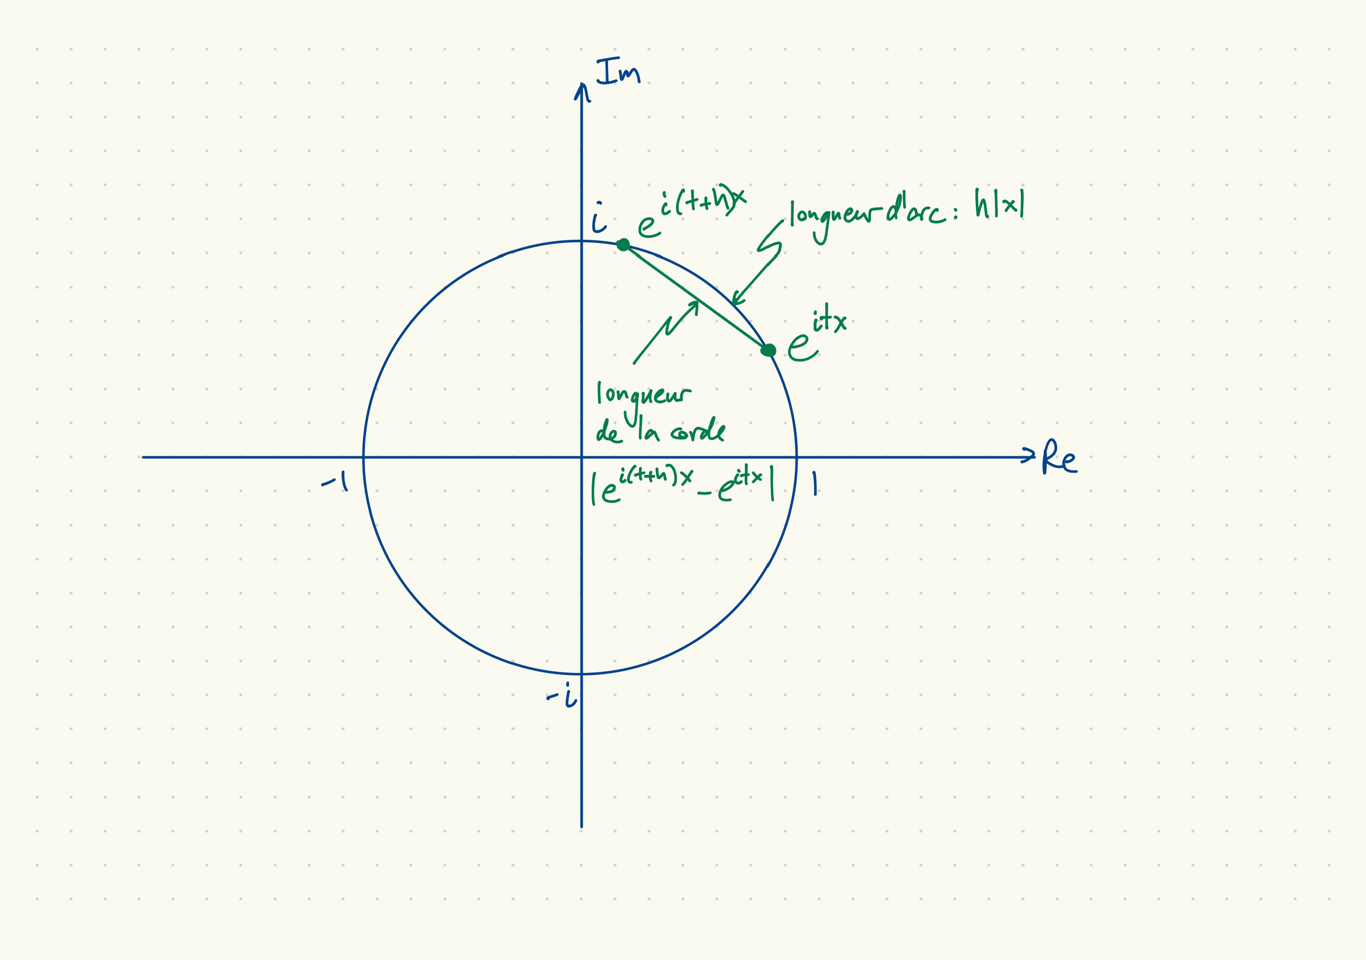 Im
i
e^{i(t+h)x}
longueur d'arc : h|x|
e^{itx}
longueur
de la corde
Re
-1
|e^{i(t+h)x} - e^{itx}|
1
-i